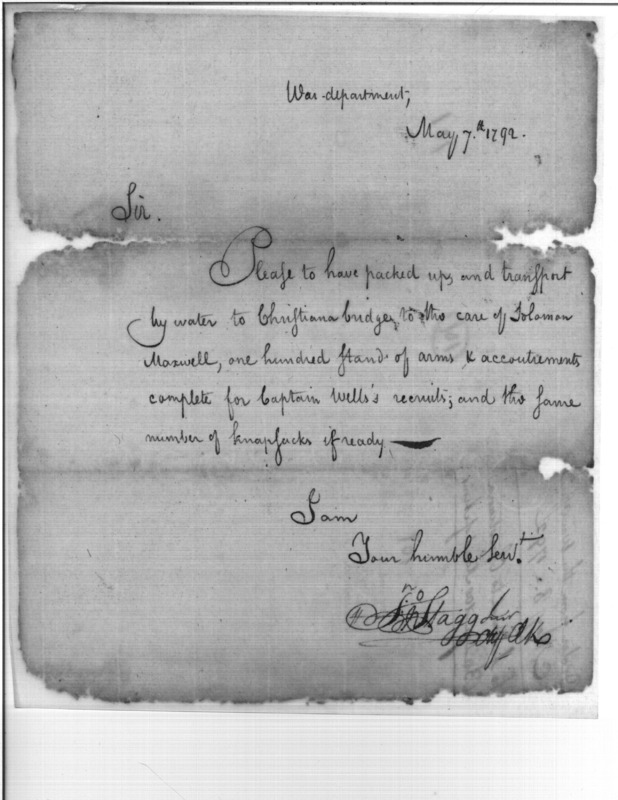 War-department,
May 7.th 1792.
Sir.
Please to have packed up, and transport
by water to Christiana bridge, to the care of Solomon
Maxwell, one hundred stand of arms & accoutrements
complete for Captain Wells's recruits; and the same
number of knapsacks if ready
I am
Your humble Servt.
Jno Stagg Junr